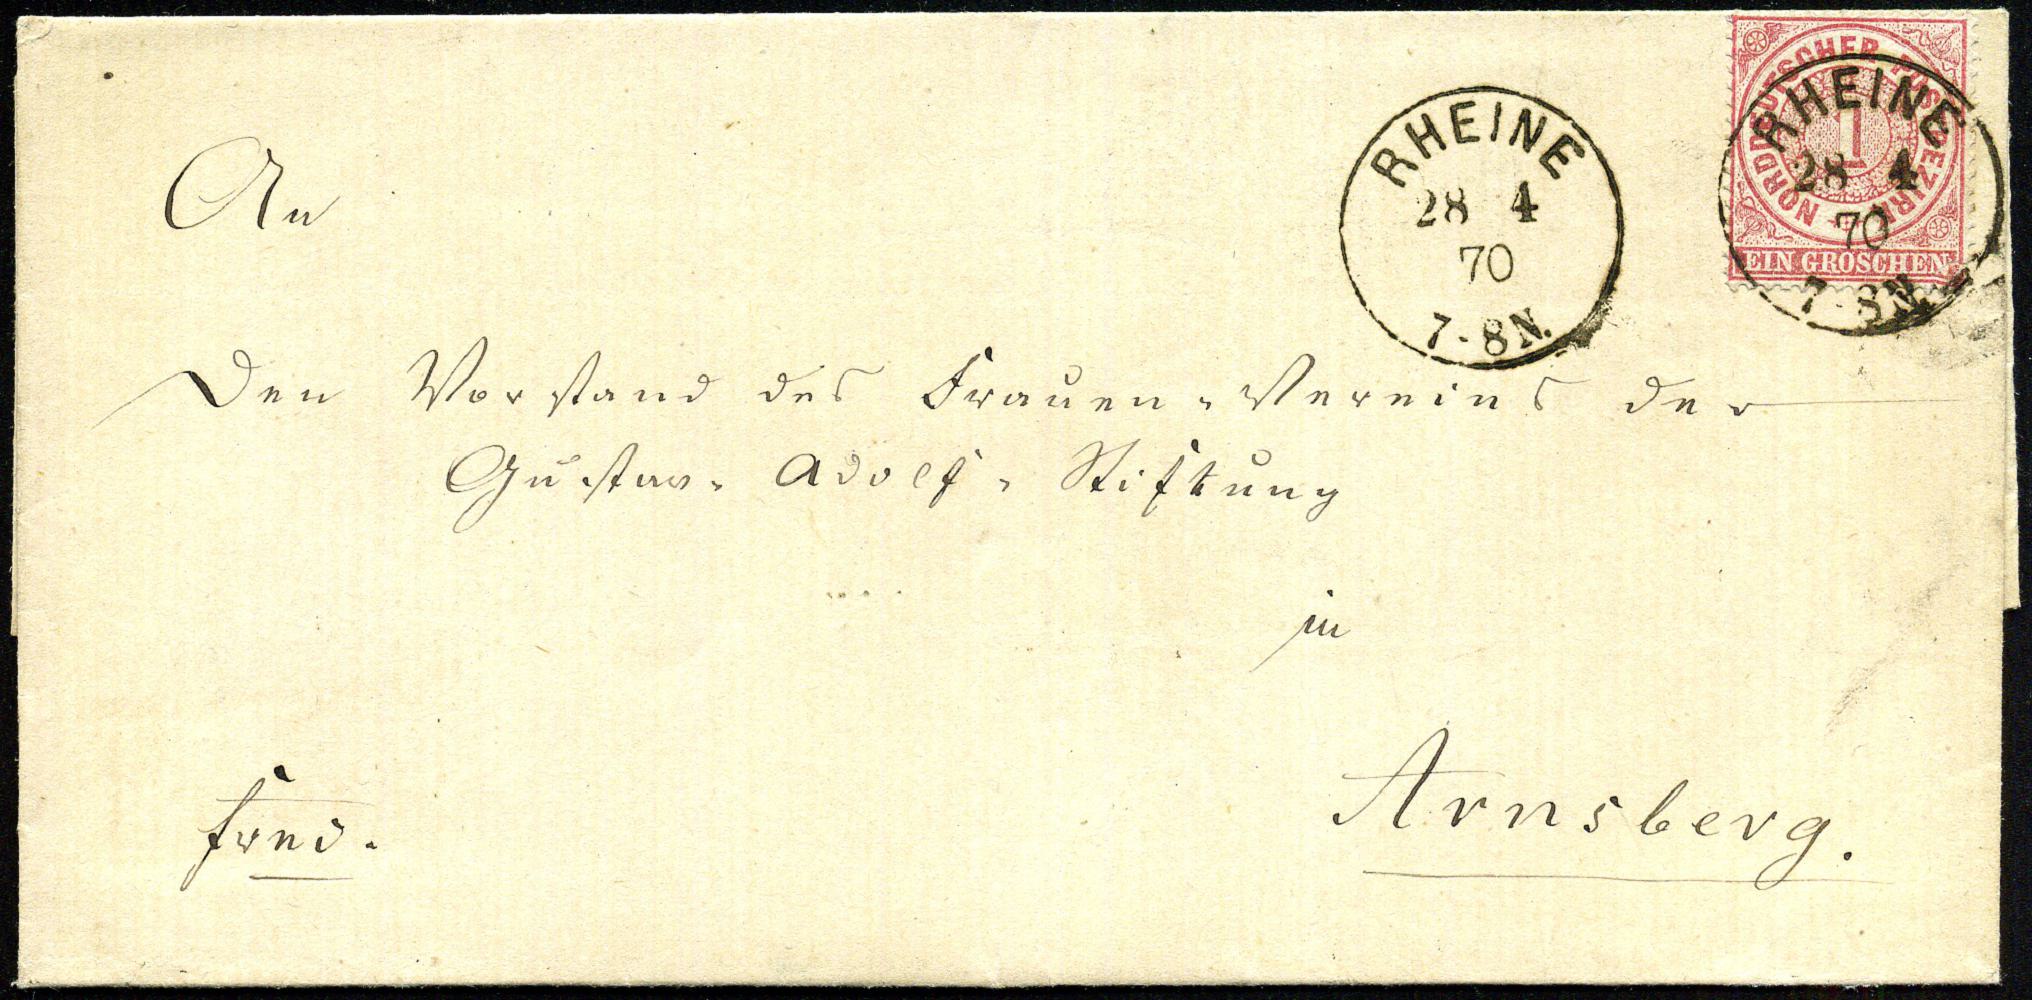 NORDDEUTSCHER POSTBEZIRK
1
EIN GROSCHEN
RHEINE
28 4
70
7-8N.
RHEINE
28 4
70
7-8N.
An
Den Vorstand des Frauen-Vereins der
Gustav-Adolf-Stiftung
in
Arnsberg.